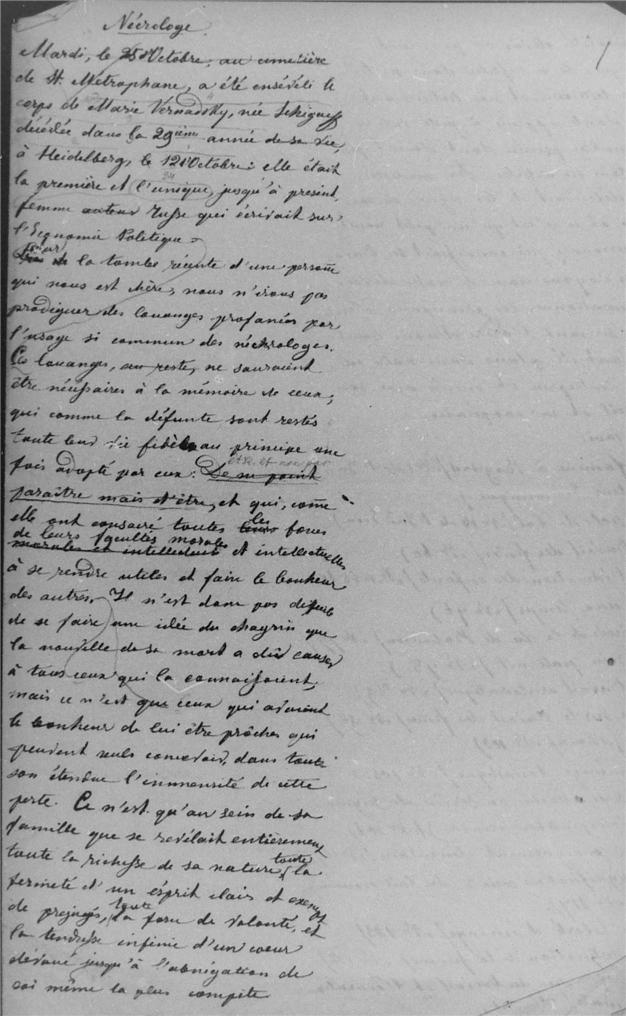 Nécrologe.
Mardi, le 25 Octobre, au cimetière
de St. Metrophane, a été enséveli le
corps de Marie Vernadsky, née
décédée dans la 29ième année de sa vie,
à Heidelberg, le 12 Octobre: elle était
la première et l'unique, jusqu'à present,
femme auteur Russe qui écrivait sur
l'Economie Politique.
Sur la tombe récente d'une personne
qui nous est chère, nous n'irons pas
prodiguer des louanges profanées par
l'usage si commun des nécrologes.
Ces louanges, au reste, ne sauraient
être nécessaires à la mémoire de ceux,
qui comme la défunte sont restés
toute leur vie fidèle au principe une
fois adopté par eux: De ne point
paraître mais d'être, et qui, comme
elle ont consacré toutes les forces
de leurs facultés morales
morales et intellectuelles et intellectuelles
à se rendre utiles et faire le bonheur
des autres. Il n'est donc pas
de se faire une idée du chagrin que
la nouvelle de sa mort a dû causer
à tous ceux qui la connaissaient,
mais ce n'est que ceux qui avaient
le bonheur de lui être prôches qui
peuvent seuls concevoir, dans toute
son étendue l'immensité de cette
perte. Ce n'est qu'au sein de sa
famille que se revélait entièrement
toute la richesse de sa nature, toute la
fermeté d'un esprit clair et exempt
de prejugés, toute la force de volonté, et
la tendresse infinie d'un coeur
dévoué jusqu'à l'abnégation de
soi même la plus complète